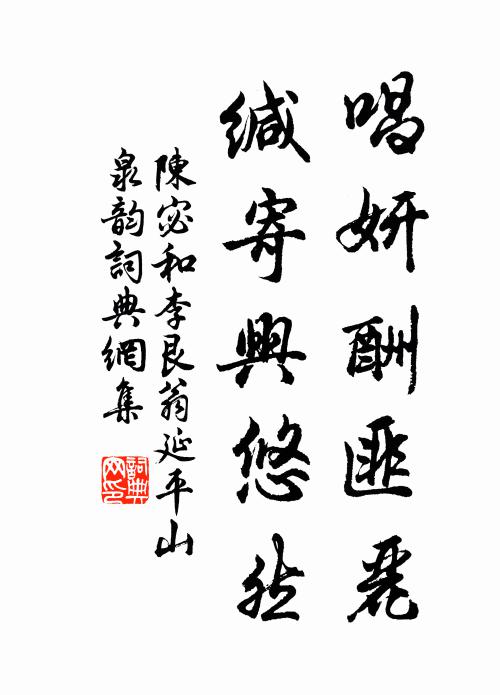 唱妍酬匪麗
緘寄興悠然
陳宓和李艮翁延平山
泉韵詞典網集
詞典网印